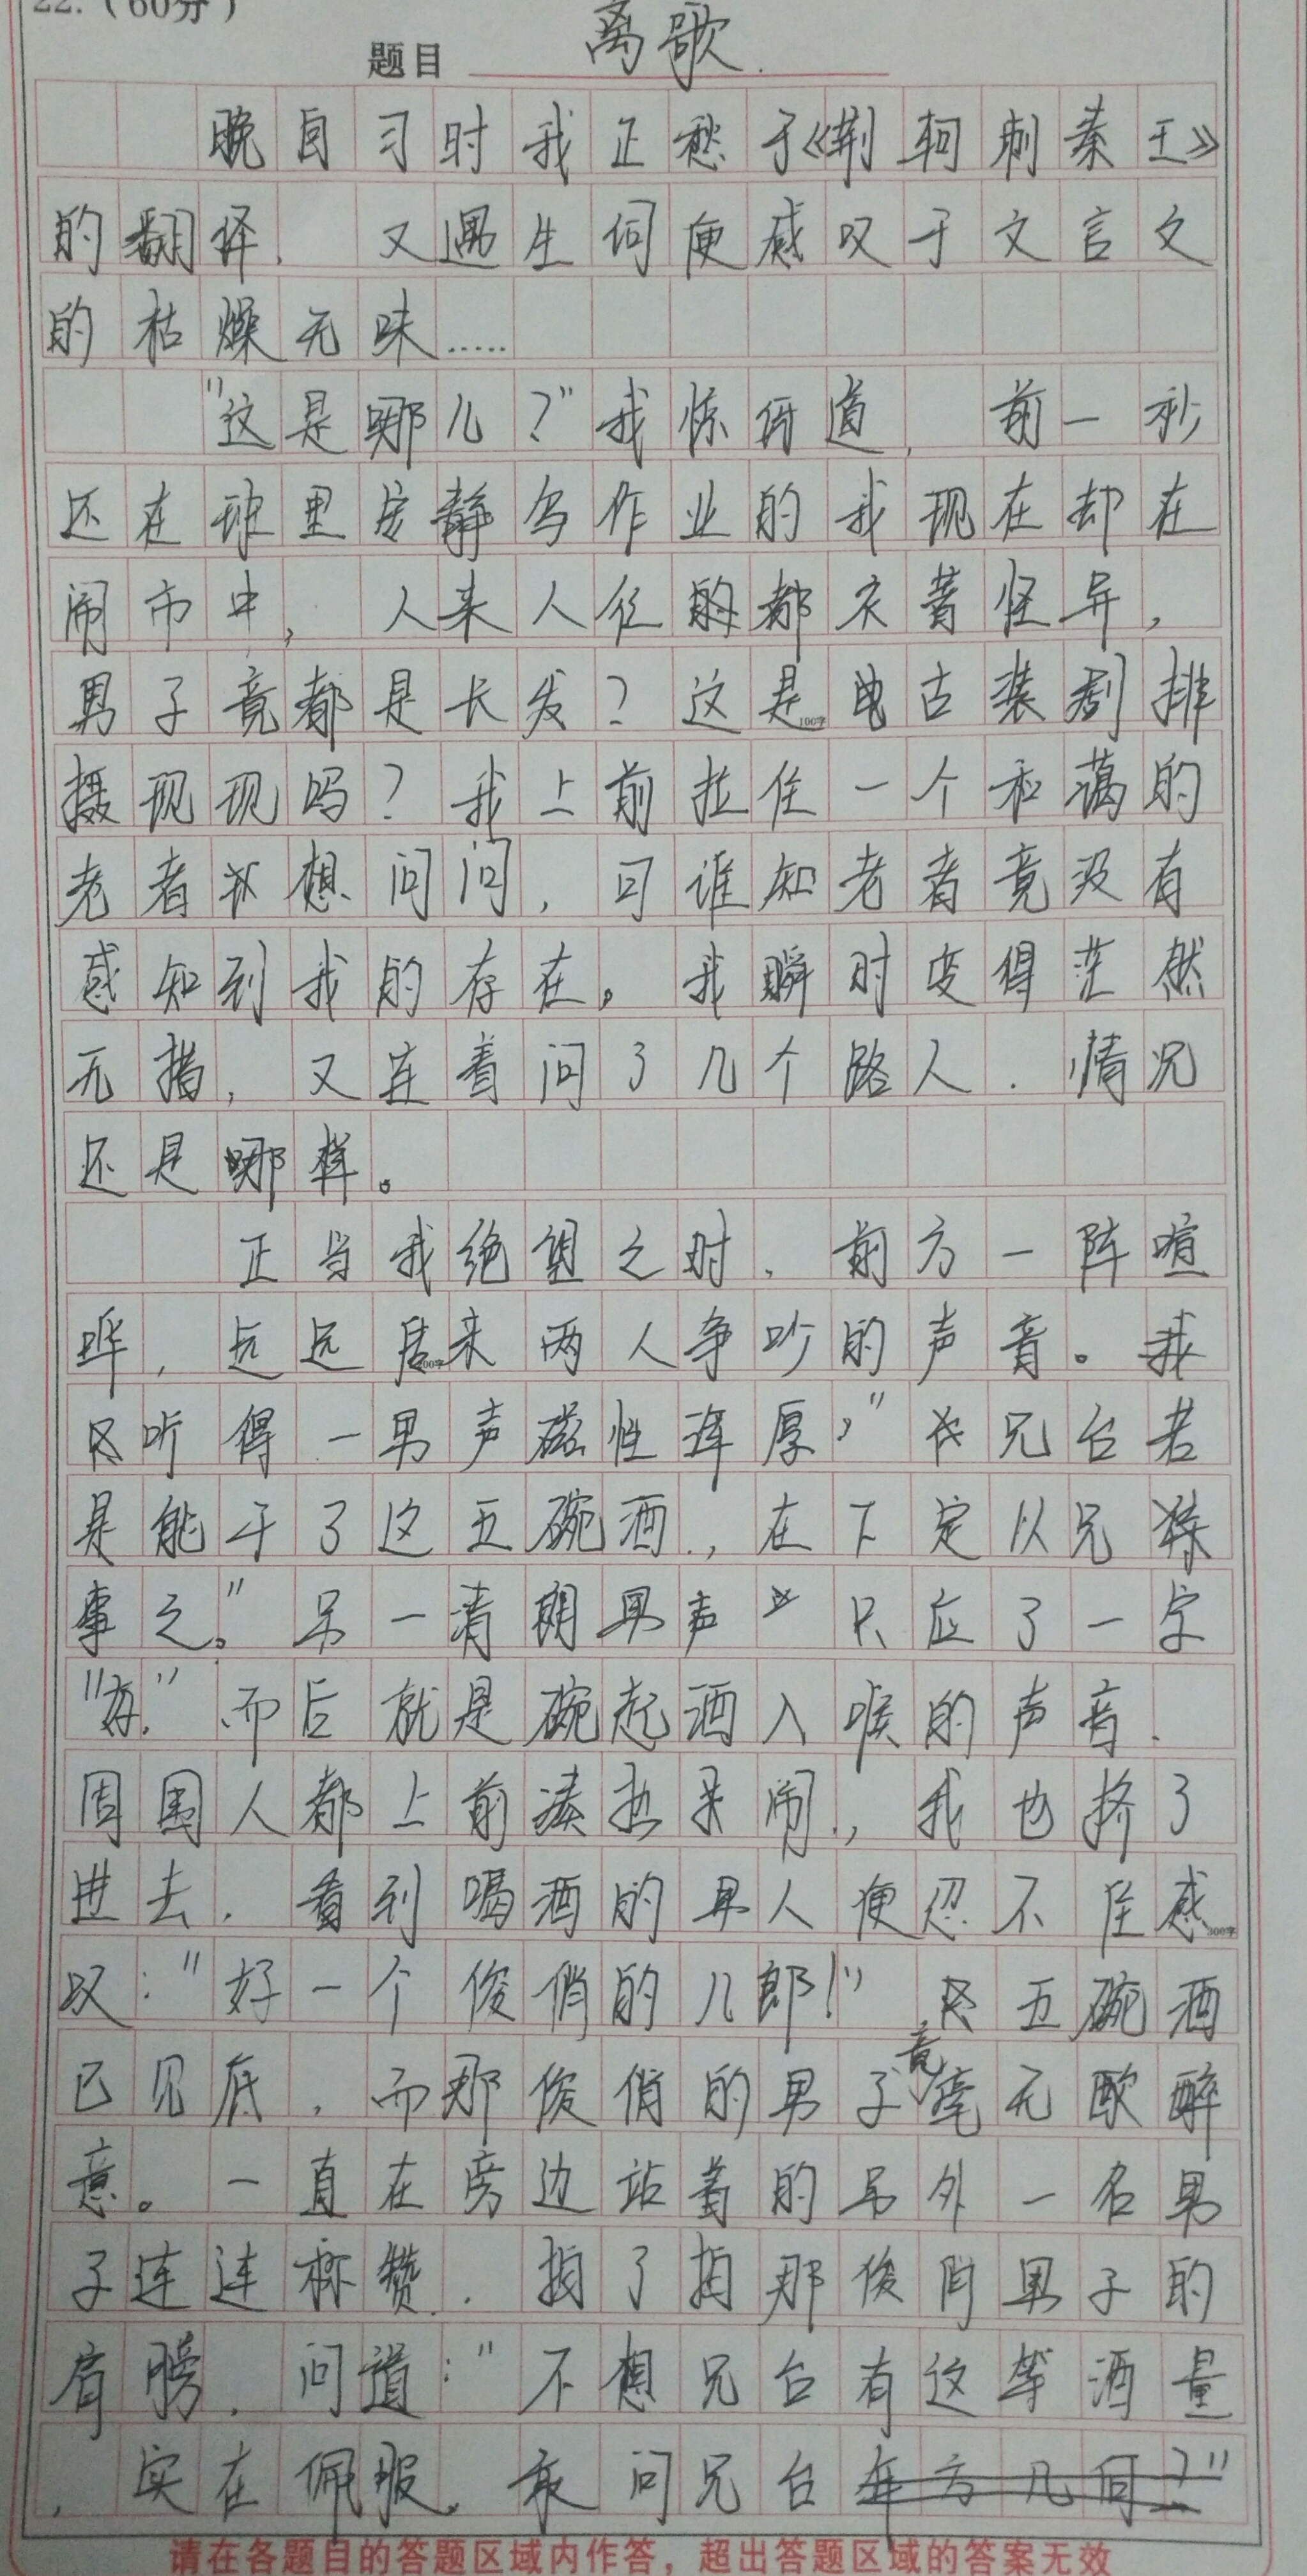 22.（60分）
题目 离歌.
晚自习时我正愁于《荆轲刺秦王》
的翻译，又遇生词便感叹于文言文
的枯燥无味……
"这是哪儿？"我惊讶道，前一秒
还在班里安静写作业的我现在却在
闹市中，人来人往的都衣着怪异，
男子竟都是长发？这是电古装剧排
100字
摄现现吗？我上前拉住一个和蔼的
老者想问问，可谁知老者竟没有
感知到我的存在。我瞬时变得茫然
无措，又连着问了几个路人.情况
还是哪样。
正当我绝望之时，前方一阵喧
哗，远远传来两人争吵的声音。我
200字
只听得一男声磁性浑厚，"兄台若
是能干了这五碗酒，在下定以兄
事之。"另一清朗男声只应了一字
"好."而后就是碗起酒入喉的声音.
周围人都上前凑热闹，我也挤了
进去，看到喝酒的男人便忍不住感
300字
叹："好一个俊俏的儿郎！"只五碗酒
已见底，而那俊俏的男子竟毫无醉
意。一直在旁边站着的另外一名男
子连连称赞，拍了拍那俊俏男子的
肩膀，问道："不想兄台有这等酒量
，实在佩服，敢问兄台年方几何？"
请在各题目的答题区域内作答，超出答题区域的答案无效